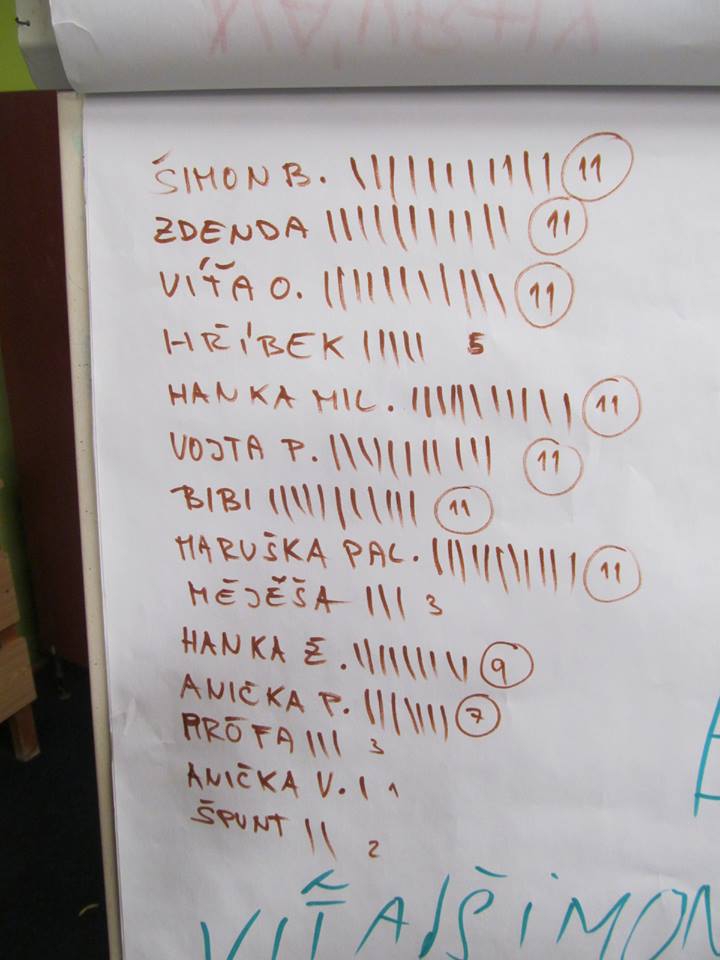 ŠIMON B. ||||||||||| 11
ZDENDA ||||||||||| 11
VÍŤA O. ||||||||||| 11
HŘÍBEK ||||| 5
HANKA MIL. ||||||||||| 11
VOJTA P. ||||||||||| 11
BIBI ||||||||||| 11
MARUŠKA PAL. ||||||||||| 11
MÉJĚŠA ||| 3
HANKA Ž. ||||||||| 9
ANIČKA P. ||||||| 7
PRÓFA ||| 3
ANIČKA V. | 1
ŠPUNT || 2
VÍŤA/ŠIMON